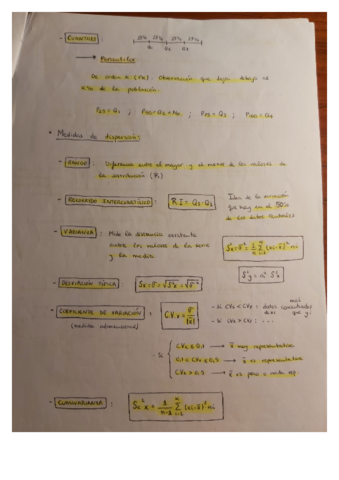 - CUARTILES: 25% 25% 25% 25%
Q1 Q2 Q3
→ Percentiles
De orden K (PK). Observación que deja debajo el
K% de la población.
P25=Q1 ; P50=Q2=Me ; P75=Q3 ; P100=Q4
• Medidas de dispersión:
- RANGO: Diferencia entre el mayor y el menor de los valores de
la distribución (R)
- RECORRIDO INTERCUARTÍLICO: RI=Q3-Q1 Idea de la variación
que hay en el 50%
de los datos centrales
- VARIANZA: Mide la distancia existente
entre los valores de la serie
y la media.
S²y = a² S²x
- DESVIACIÓN TÍPICA:
- COEFICIENTE DE VARIACIÓN:
(medida adimensional)
C.V.x = S/|x̄|
- Si CVx < CVy: datos
más
que y
- Si CVx > CVy: ...
- Si
CVx ≤ 0.1 → x̄ muy representativa
0.1 < CVx ≤ 0.5 → x̄ es representativa
CVx > 0.5 → x̄ es poco o nada rep.
- CUASIVARIANZA: